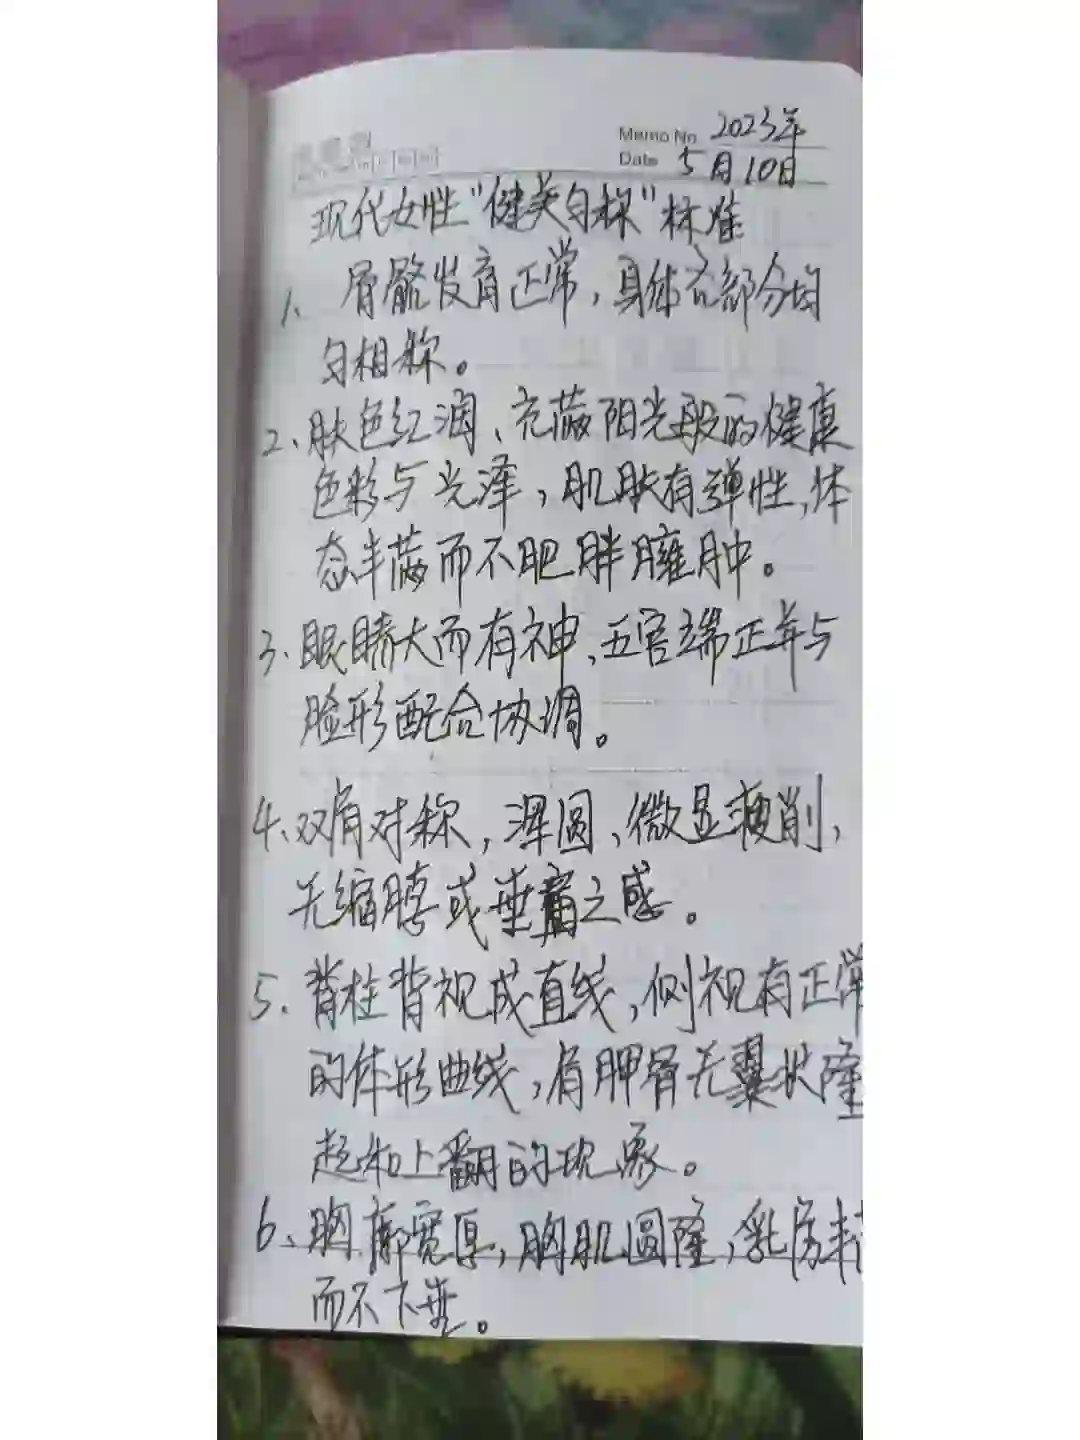 Memo No 2023年
Date 5月10日
现代女性"健美匀称"标准
1、骨骼发育正常,身体各部分均
匀相称。
2、肤色红润、充满阳光般的健康
色彩与光泽,肌肤有弹性,体
态丰满而不肥胖臃肿。
3、眼睛大而有神、五官端正并与
脸形配合协调。
4、双肩对称,浑圆、微显瘦削、
无缩脖或垂肩之感。
5、脊柱背视成直线,侧视有正常
的体形曲线,肩胛骨无翼状隆
起和上翻的现象。
6、胸廓宽厚,胸肌圆隆,乳房丰
而不下垂。